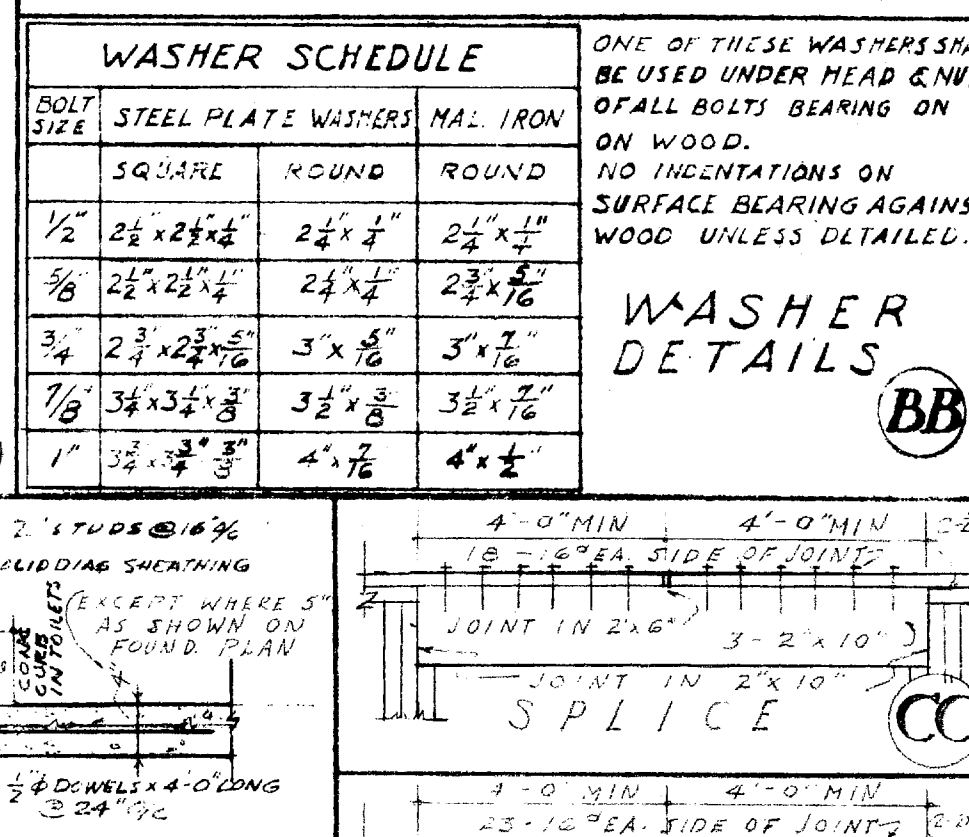 WASHER SCHEDULE
BOLT SIZE STEEL PLATE WASHERS MAL. IRON
SQUARE ROUND ROUND
1/2" 2 1/2" x 2 1/2" x 1/4" 2 1/4" x 1/4" 2 1/4" x 1/4"
5/8" 2 1/2" x 2 1/2" x 1/4" 2 1/4" x 1/4" 2 3/4" x 5/16"
3/4" 2 3/4" x 2 3/4" x 5/16" 3" x 5/16" 3" x 7/16"
7/8" 3 1/4" x 3 1/4" x 3/8" 3 1/2" x 3/8" 3 1/2" x 7/16"
1" 3 3/4" x 3 3/4" 3/8" 4" x 7/16 4" x 1/2"
ONE OF THESE WASHERS SHA
BE USED UNDER HEAD & NU
OF ALL BOLTS BEARING ON
ON WOOD.
NO INDENTATIONS ON
SURFACE BEARING AGAINS
WOOD UNLESS DETAILED.
WASHER
DETAILS
BB
STUDS @ 16" o/c
DIAG SHEATHING
EXCEPT WHERE 5"
AS SHOWN ON
FOUND. PLAN
CONC
CURB
IN TOILETS
4"
1/2" φ DOWELS x 4'-0" LONG
@ 24" o/c
4'-0" MIN 4'-0" MIN
18 - 16d EA. SIDE OF JOINT
JOINT IN 2"x6"
3 - 2" x 10"
JOINT IN 2" x 10"
SPLICE
CC
4'-0" MIN 4'-0" MIN
23 - 16d EA. SIDE OF JOINT